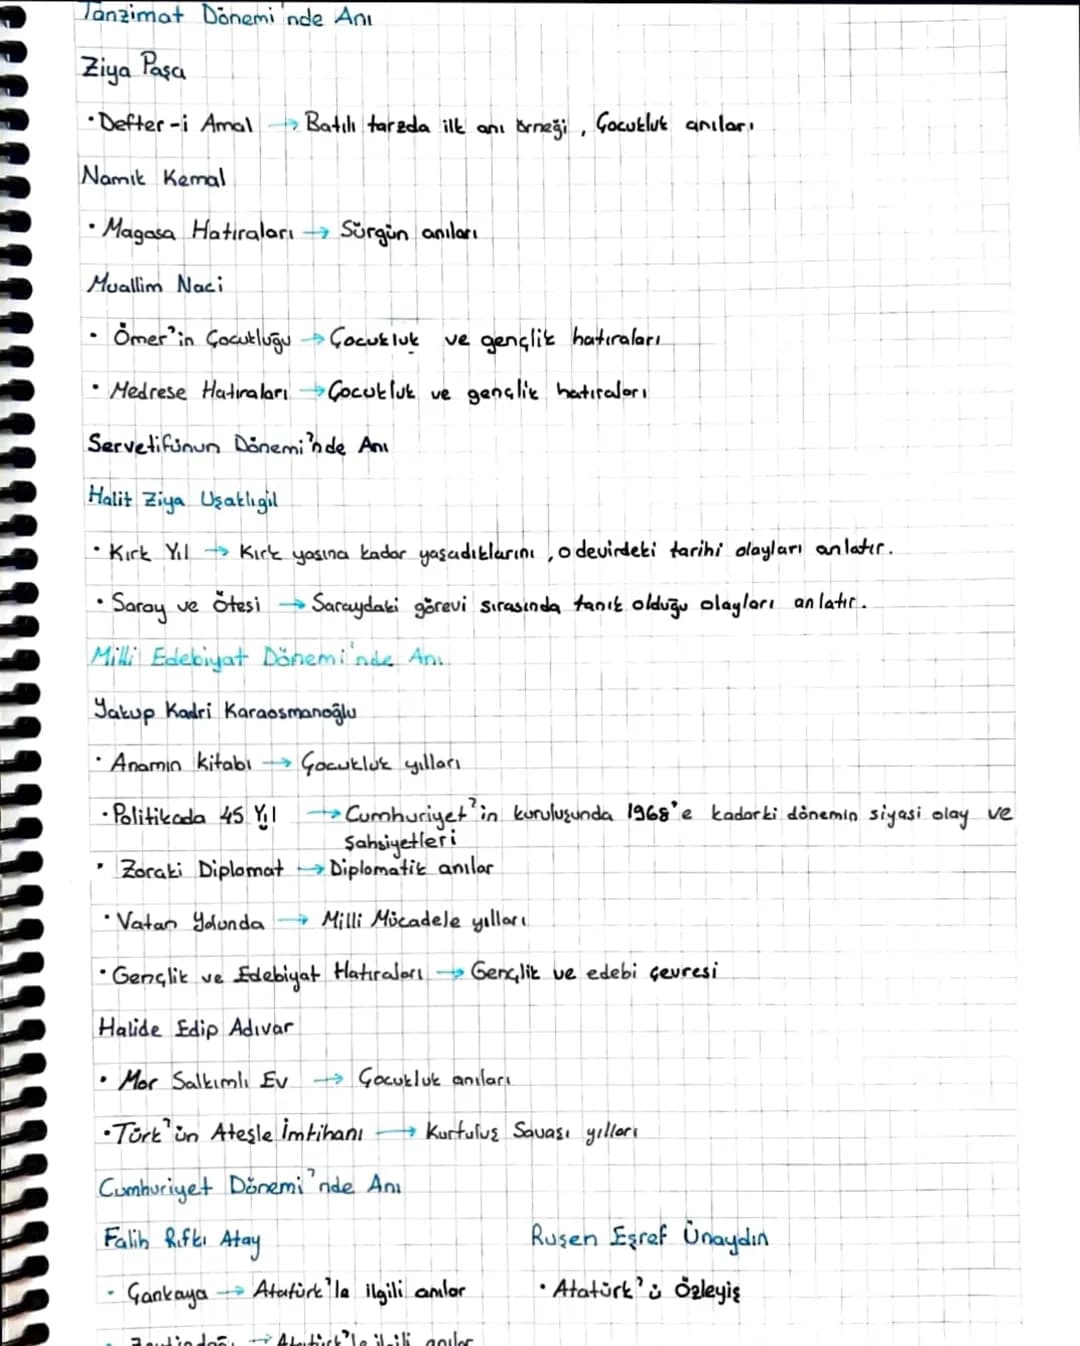 Tanzimat Dönemi'nde Anı
Ziya Paşa
• Defter-i Amal → Batılı tarzda ilk anı örneği, Çocukluk anıları
Namık Kemal
• Magosa Hatıraları → Sürgün anıları
Muallim Naci
• Ömer'in Çocukluğu → Çocukluk ve gençlik hatıraları
• Medrese Hatıraları → Çocukluk ve gençlik hatıraları
Servetifünun Dönemi'nde Anı
Halit Ziya Uşaklıgil
• Kırk Yıl → Kırk yaşına kadar yaşadıklarını, o devirdeki tarihi olayları anlatır.
• Saray ve Ötesi → Saraydaki görevi sırasında tanık olduğu olayları anlatır.
Milli Edebiyat Dönemi'nde Anı
Yakup Kadri Karaosmanoğlu
• Anamın kitabı → Çocukluk yılları
• Politikada 45 Yıl → Cumhuriyet'in kuruluşunda 1968'e kadarki dönemin siyasi olay ve
şahsiyetleri
• Zoraki Diplomat → Diplomatik anılar
• Vatan Yolunda → Milli Mücadele yılları
• Gençlik ve Edebiyat Hatıraları → Gençlik ve edebi çevresi
Halide Edip Adıvar
• Mor Salkımlı Ev → Çocukluk anıları
• Türk'ün Ateşle İmtihanı → Kurtuluş Savaşı yılları
Cumhuriyet Dönemi'nde Anı
Falih Rıfkı Atay
• Çankaya → Atatürk'le ilgili anılar
Ruşen Eşref Ünaydın
• Atatürk'ü Özleyiş
• Zeytindağı → Atatürk'le ilgili anılar